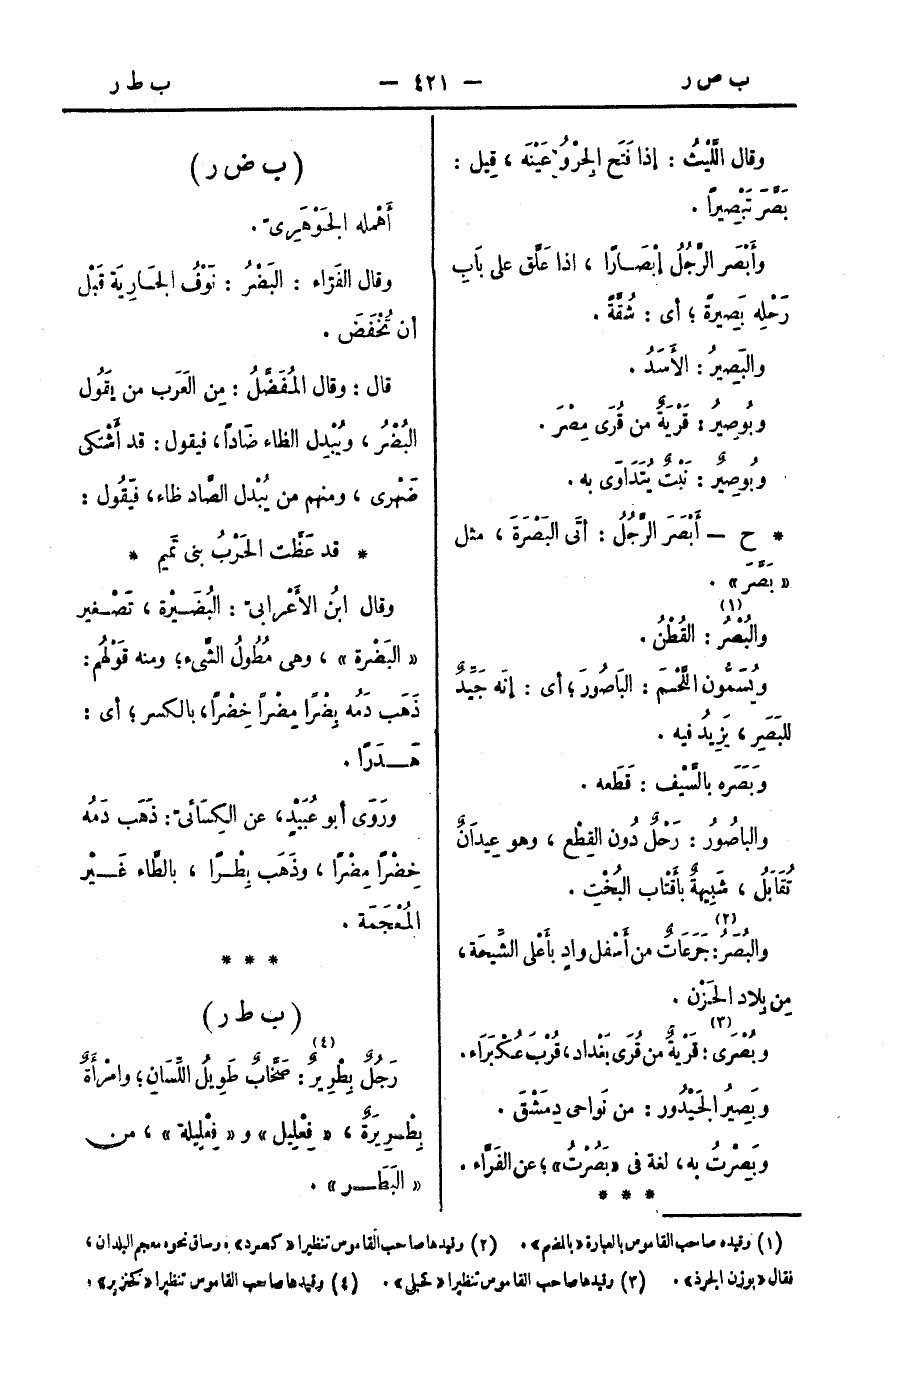 ب ص ر
— ٤٢١ —
ب ط ر
وقال اللَّيْثُ : إذا فَتَح الجِرْوُ عَيْنَه ، قِيل :
بَصَّرَ تَبْصِيراً .
وأَبْصَر الرَّجُلُ إبْصَارًا ، اذا عَلَّق على بَابِ
رَحْلِه بَصِيرةً ؛ أى : شُقَّةً .
والبَصِيرُ : الأَسَدُ .
وبُوصِيرُ : قَرْيَةٌ من قُرَى مِصْرَ .
وبُوصِيرٌ : نَبْتٌ يُتَدَاوَى به .
* ح — أَبْصَرَ الرَّجُلُ : أتَى البَصْرَةَ ، مثل
« بَصَّرَ » .
والبُصْرُ (١) : القُطْنُ .
ويُسَمُّون اللَّحْمَ : البَاصُورَ ؛ أى : إنّه جَيِّدٌ
للبَصَرِ ، يَزِيدُ فيه .
وبَصَرَه بالسَّيْف : قَطَعه .
والباصُورُ : رَحْلٌ دُون القِطْعِ ، وهو عِيدَانٌ
تُقَابَلُ ، شَبِيهةٌ بأَقْتَاب البُخْتِ .
والبُصَرُ (٢) : جَرَعَاتٌ من أَسْفل وادٍ بأَعْلى الشِّيحَة ،
مِن بِلاد الحَزْن .
وبُصْرَى (٣) : قَرْيةٌ من قُرَى بَغْداد ، قُرْبَ عُكْبَرَاء .
وبَصِيرُ الجَيْدُور : من نَواحِى دِمَشْقَ .
وبَصِرْتُ به ، لغة فى « بَصُرْتُ » ؛ عن الفَرَّاء .
* * *
( ب ض ر )
أَهْمله الجَوْهَرِىّ .
وقال الفَرّاء : البَضْرُ : نَوْفُ الجَارِيَة قَبْل
أن تُخْفَضَ .
قال : وقال المُفَضَّلُ : مِن العَرَب من يَقُول
البُضْرُ ، ويُبْدِل الظاء ضَاداً ، فيقول : قد أَشْتكى
ضَهْرى ، ومنهم من يُبْدل الضّاد ظاء ، فَيَقُول :
* قد عَظَّت الحَرْبُ بنى تَميم *
وقال ابنُ الأَعْرابىّ : البُضَيْرة ، تَصْغير
« البَضْرة » ، وهى مُطُولُ الشَّىء ؛ ومنه قَوْلُهم :
ذَهَب دَمُه بِضْرًا مِضْراً خِضْراً ، بالكسر ؛ أى :
هَدَرًا .
ورَوَى أبو عُبَيْدٍ ، عن الكِسَائىّ : ذَهَب دَمُه
خِضْرًا مِضْرًا ، وذَهَب بِطْرًا ، بالطَّاء غَيْر
المُعْجَمَة .
* * *
( ب ط ر )
رَجُلٌ بِطْرِيرٌ (٤) : صَخَّابٌ طَوِيلُ اللِّسَانِ ؛ وامْرأَةٌ
بِطْرِيرَةٌ ، « فِعْلِيل » و « فِعْلِيلة » ، من
« البَطَر » .
(١) وقيده صاحب القاموس بالعبارة «بالضم» . (٢) وقيدها صاحب القاموس تنظيرا «كصرد» . وساق نحوه معجم البلدان ،
فقال «بوزن الجرذ» . (٣) وقيدها صاحب القاموس تنظيرا «كحبلى» . (٤) وقيدها صاحب القاموس تنظيرا «كخنزير» ؛